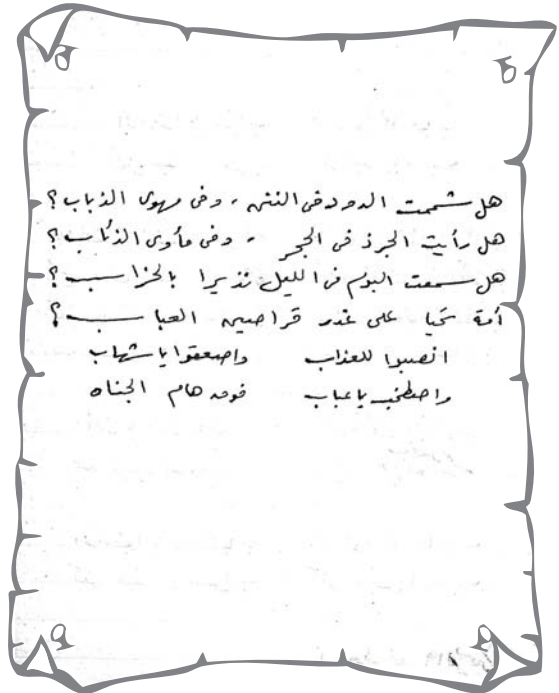 هل شممت الدود في النتن ، وفي مهوى الذباب ؟
هل رأيت الجرذ في الجحر ، وفي مأوى الذئاب ؟
هل سمعت البوم في الليل نذيرا بالخراب ؟
أمة تحيا على غدر قراصين العباب ؟
انصبوا للعذاب واصعقوا يا شهاب
واصطخب يا عباب فوق هام الجناه